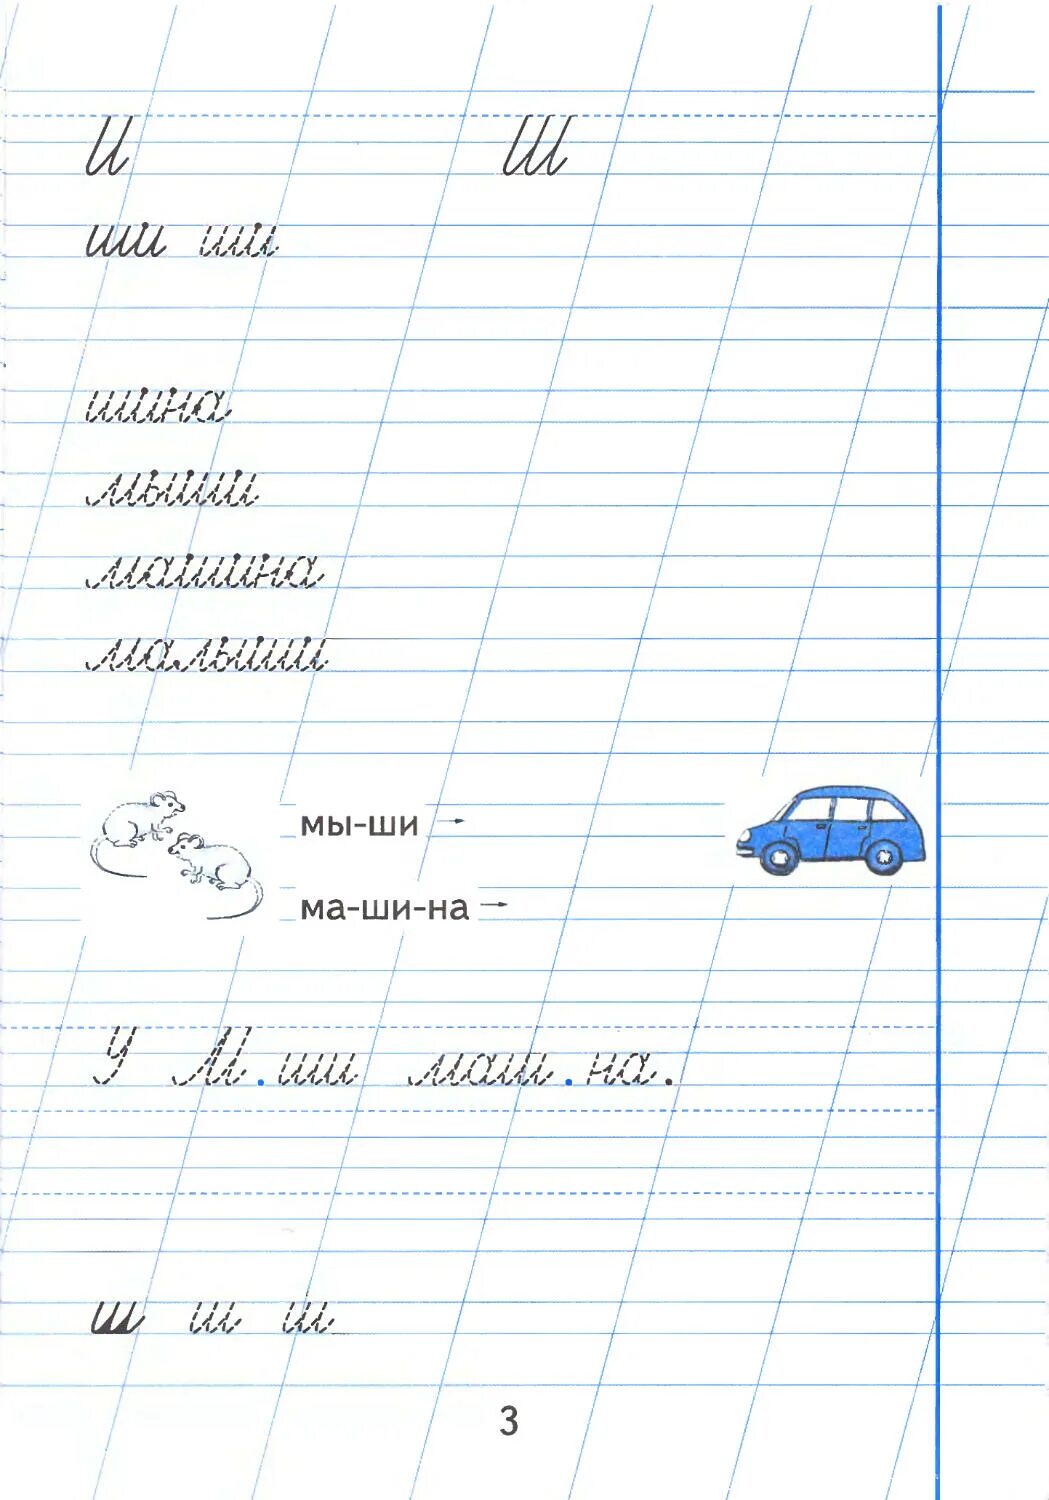 И Ш
ши ши
шина
мыши
машина
малыши
мы-ши →
ма-ши-на →
У М.ши маш.на.
ш ш ш
3